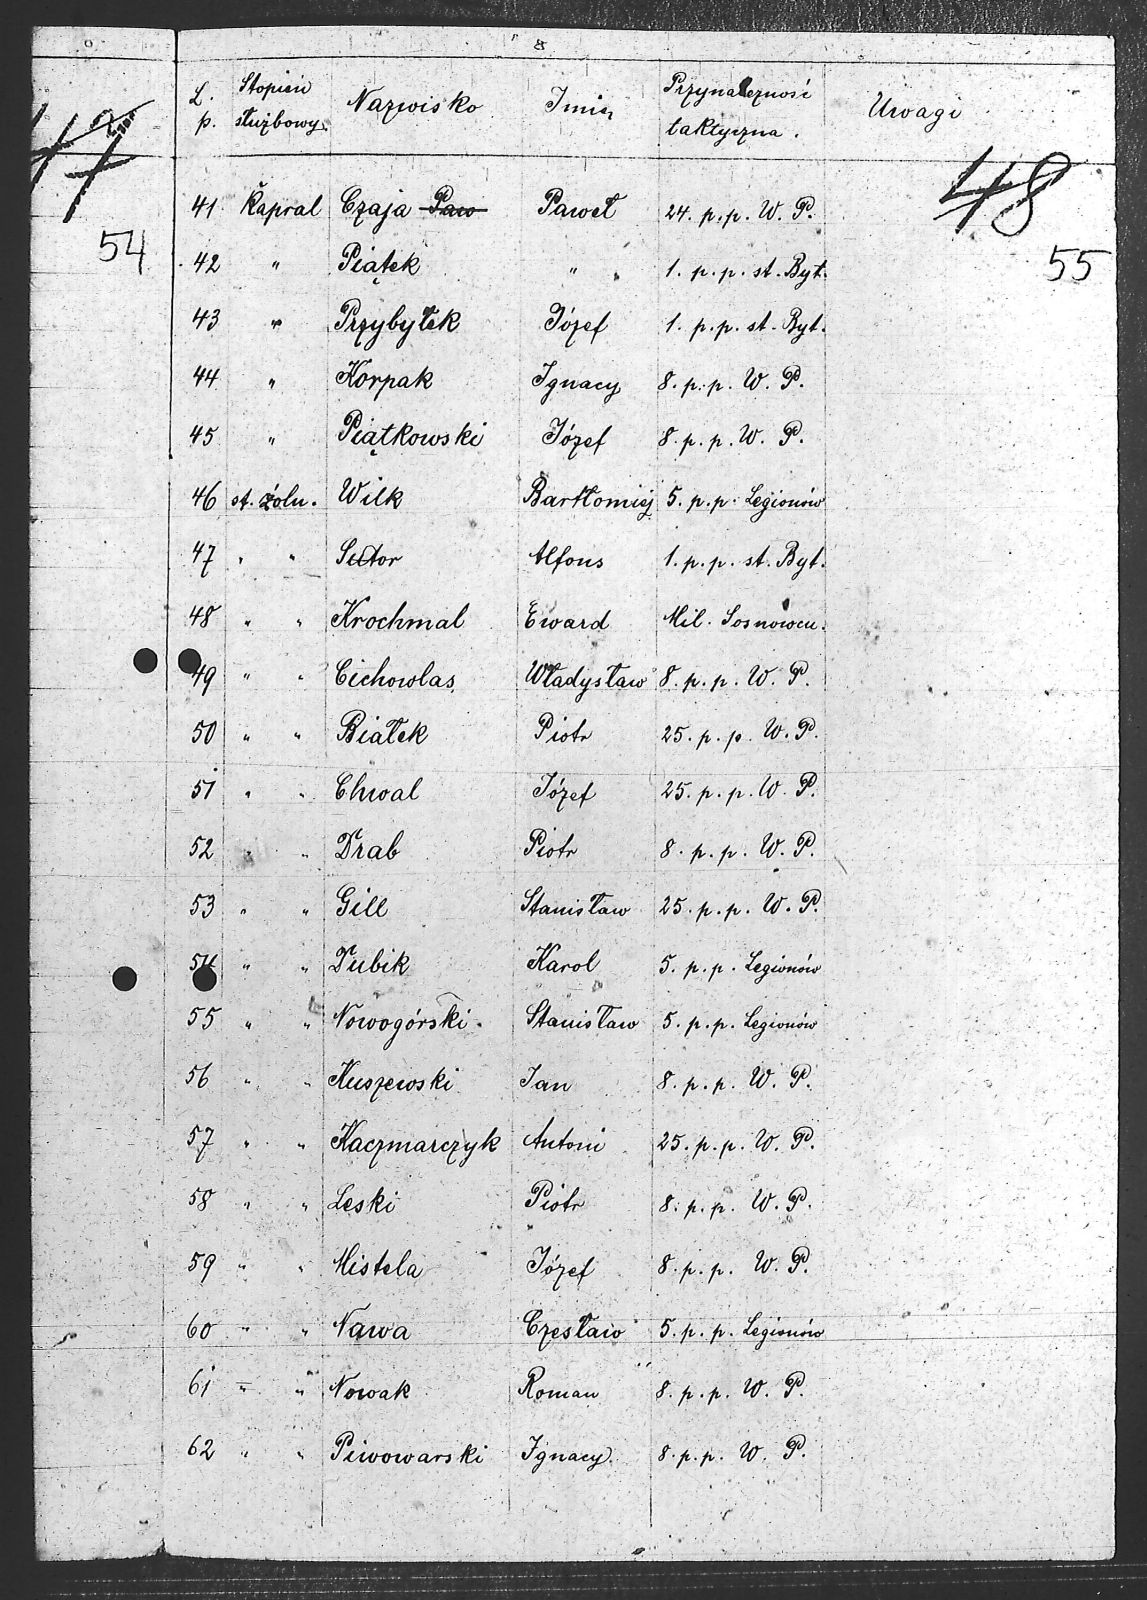 8
L. p. Stopień służbowy. Nazwisko Imię Przynależność taktyczna. Uwagi
47 48
54 55
41 Kapral Czaja Paw Paweł 24. p.p. W. P.
42 " Piątek " 1. p.p. st. Byt.
43 " Przybyłek Józef 1. p.p. st. Byt.
44 " Korpak Ignacy 8. p.p. W. P.
45 " Piątkowski Józef 8. p.p. W. P.
46 st. żołn. Wilk Bartłomiej 5. p.p. Legionów
47 " " Alfons 1. p.p. st. Byt.
48 " " Krochmal Eward Mil. Sosnowcu.
49 " " Cichowlas Władysław 8. p.p. W. P.
50 " " Białek Piotr 25. p.p. W. P.
51 " " Chwal Józef 25. p.p. W. P.
52 " " Drab Piotr 8. p.p. W. P.
53 " " Gill Stanisław 25. p.p. W. P.
54 " " Dubik Karol 5. p.p. Legionów
55 " " Nowogórski Stanisław 5. p.p. Legionów
56 " " Kuszewski Jan 8. p.p. W. P.
57 " " Kaczmarczyk Antoni 25. p.p. W. P.
58 " " Leski Piotr 8. p.p. W. P.
59 " " Mistela Józef 8. p.p. W. P.
60 " " Nawa Czesław 5. p.p. Legionów
61 " " Nowak Roman 8. p.p. W. P.
62 " " Piwowarski Ignacy 8. p.p. W. P.